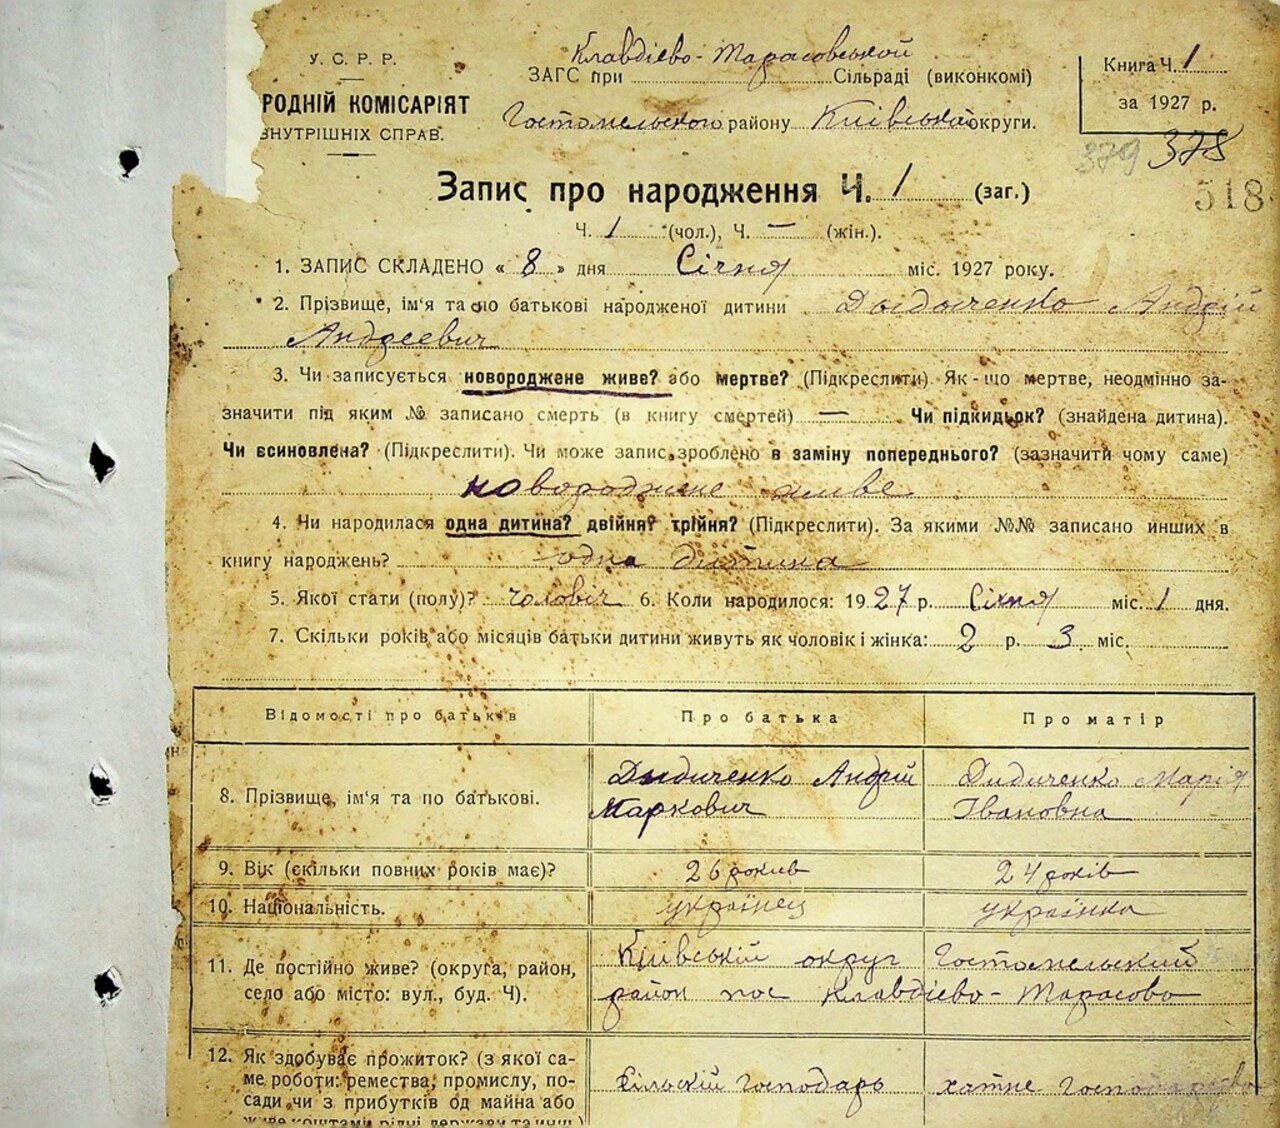 У. С. Р. Р.
РОДНІЙ КОМІСАРІЯТ
ВНУТРІШНІХ СПРАВ.
Клавдієво-Тарасовській
ЗАГС при Сільраді (виконкомі)
Гостомельского району Київської округи.
Книга Ч. 1
за 1927 р.
379 378
518
Запис про народження Ч. 1 (заг.)
Ч. 1 (чол.), Ч. — (жін.).
1. ЗАПИС СКЛАДЕНО « 8 » дня Січня міс. 1927 року.
2. Прізвище, ім'я та по батькові народженої дитини Дыдыченко Андрій
Андреевич
3. Чи записується новороджене живе? або мертве? (Підкреслити). Як-що мертве, неодмінно за-
значити під яким № записано смерть (в книгу смертей) — Чи підкидьок? (знайдена дитина).
Чи всиновлена? (Підкреслити). Чи може запис зроблено в заміну попереднього? (зазначити чому саме)
новороджене живе
4. Чи народилася одна дитина? двійня? трійня? (Підкреслити). За якими №№ записано инших в
книгу народжень? одна дитина
5. Якої стати (полу)? чоловіч 6. Коли народилося: 1927 р. Січня міс. 1 дня.
7. Скільки років або місяців батьки дитини живуть як чоловік і жінка: 2 р. 3 міс.
Відомості про батьків Про батька Про матір
8. Прізвище, ім'я та по батькові. Дыдиченко Андрій Маркович Дидиченко Марія Івановна
9. Вік (скільки повних років має)? 26 років 24 років
10. Національність. українец українка
11. Де постійно живе? (округа, район, Київській округ Гостомельский
село або місто: вул., буд. Ч). район пос Клавдієво-Тарасово
12. Як здобуває прожиток? (з якої са-
ме роботи: ремества, промислу, по- Сільскій господарь хатне господарство
сади чи з прибутків од майна або
живе коштами рідні держави та инш.)